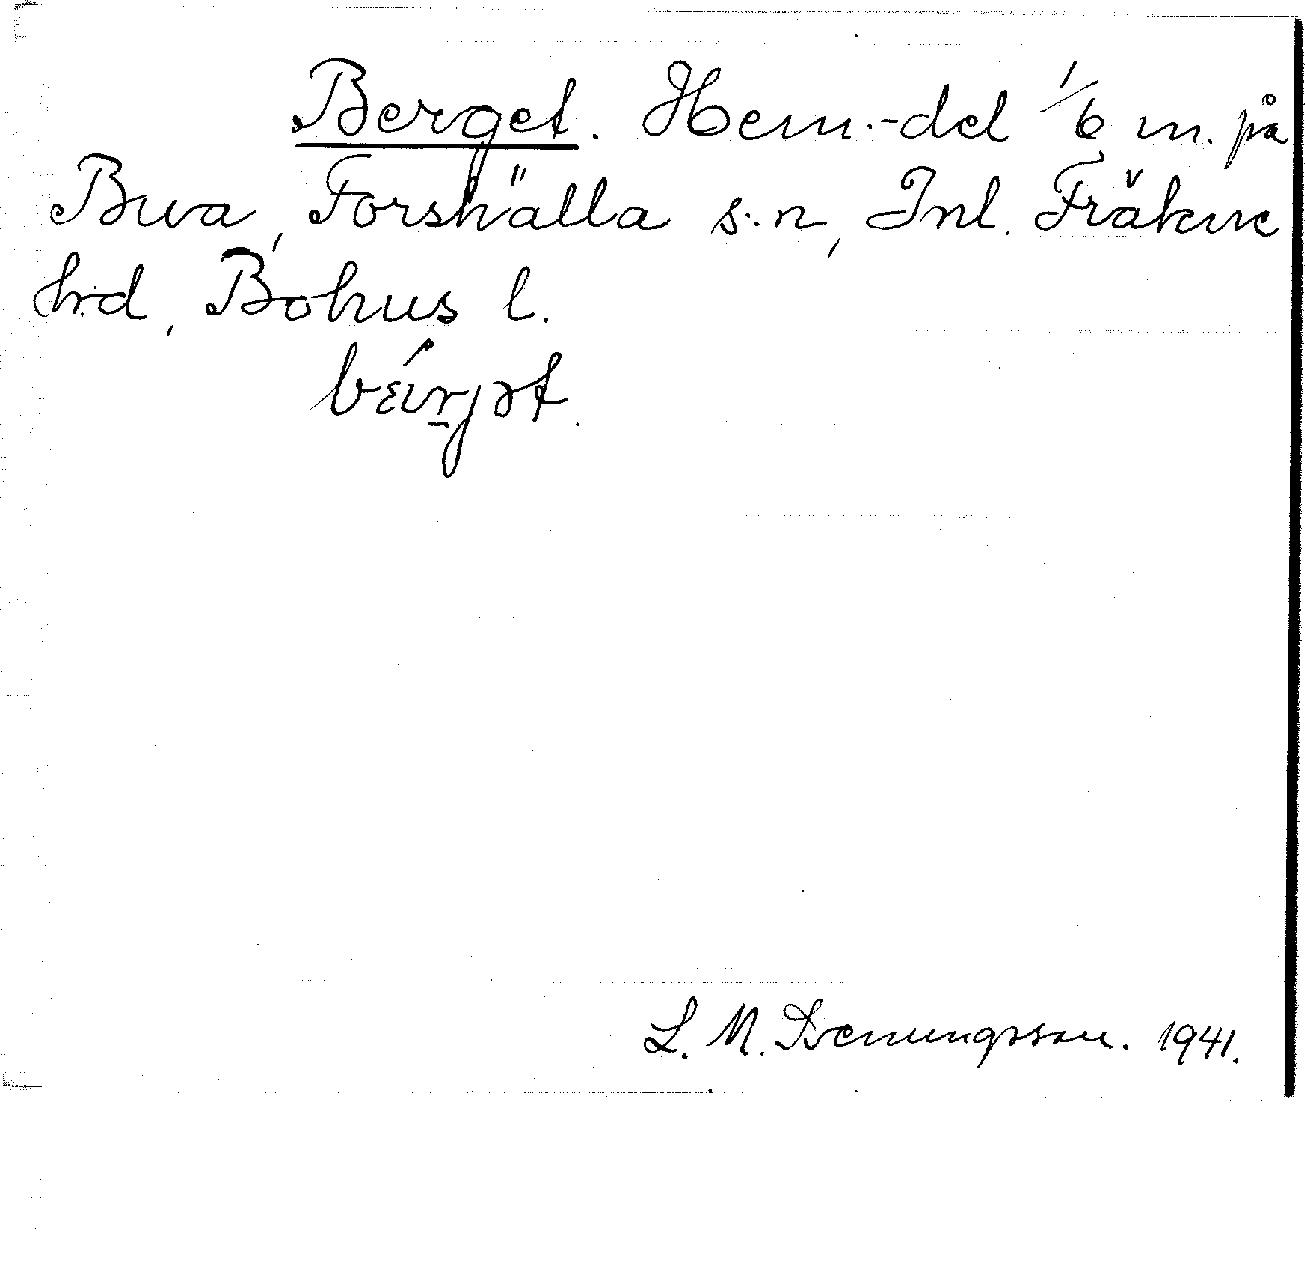 Berget. Hem.-del 1/6 m. på
Bua, Forshälla s:n, Inl. Fräkne
hrd, Bohus l.
L. M. 1941.